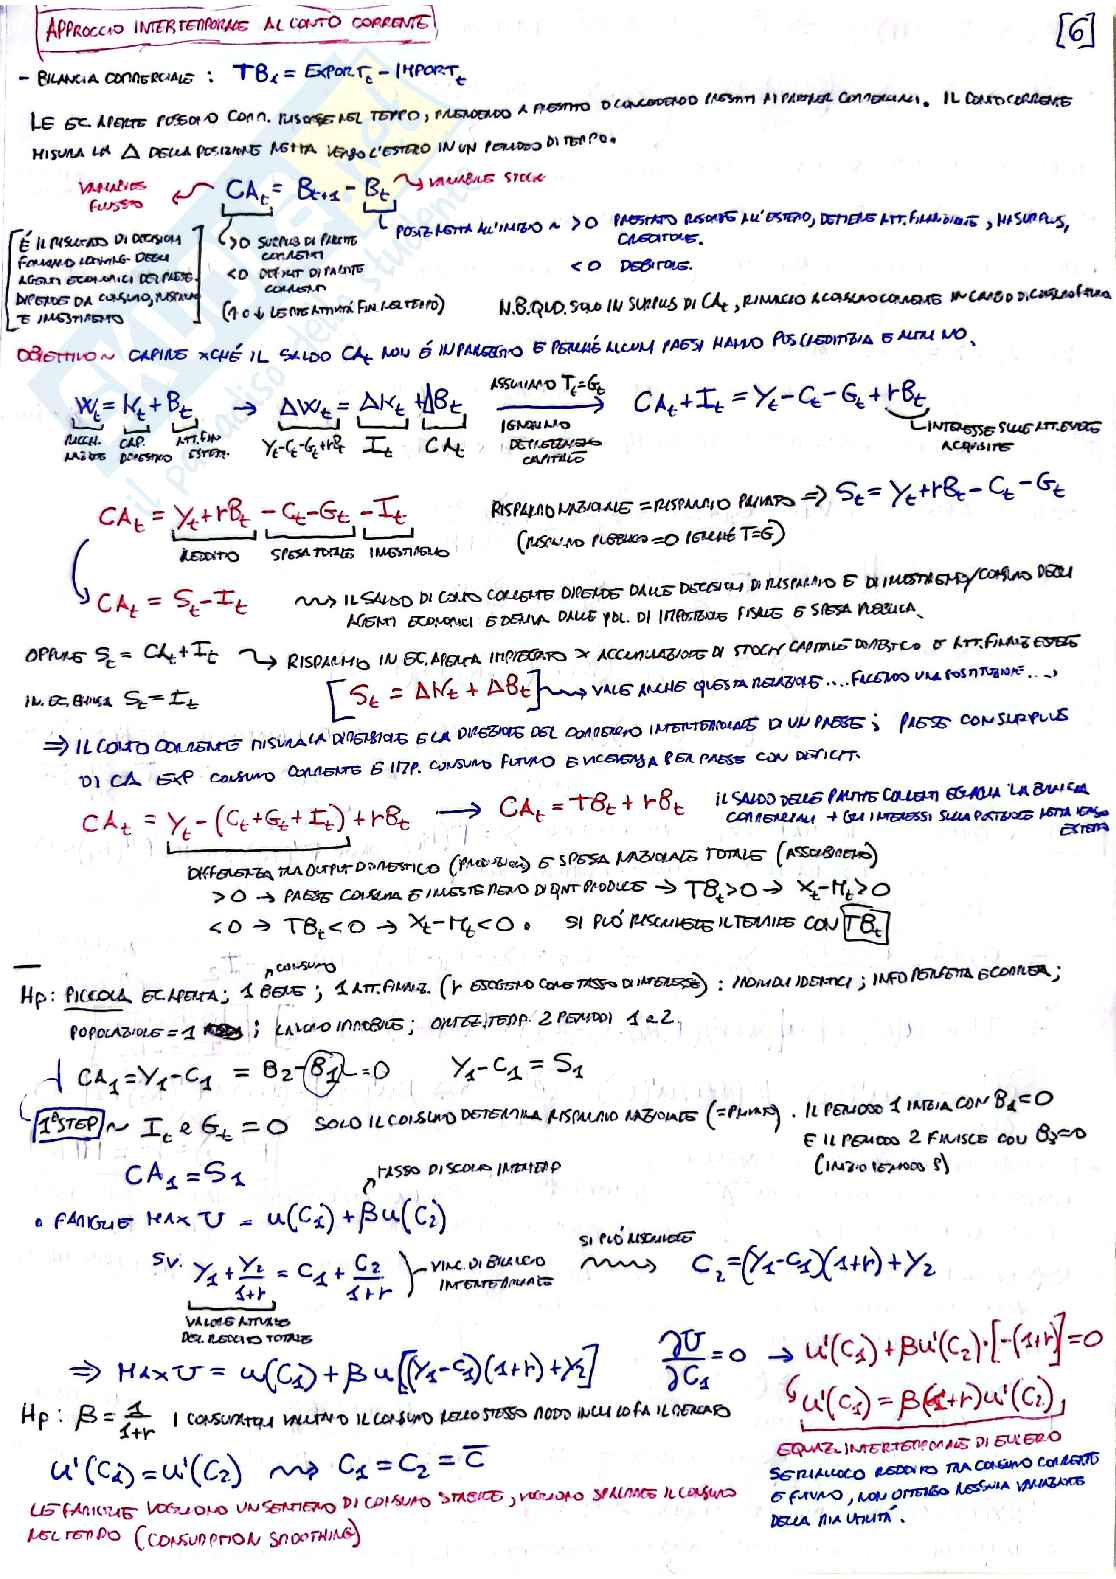 APPROCCIO INTERTEMPORALE AL CONTO CORRENTE
[6]
- BILANCIA COMMERCIALE : TB_t = EXPORT_t - IMPORT_t
LE EC. APERTE POSSONO COMM. RISORSE NEL TEMPO, PRENDENDO A PRESTITO O CONCEDENDO PRESTITI AI PARTNER COMMERCIALI. IL CONTO CORRENTE
MISURA LA Δ DELLA POSIZIONE NETTA VERSO L'ESTERO IN UN PERIODO DI TEMPO.
VARIABILE FLUSSO CA_t = B_t+1 - B_t VARIABILE STOCK
POSIZ. NETTA ALL'INIZIO ~ >0 PRESTATO RISORSE ALL'ESTERO, DETIENE ATT. FINANZIARIE, HA SURPLUS, CREDITORE.
<0 DEBITORE.
[È IL RISULTATO DI DECISIONI FORWARD LOOKING DEGLI AGENTI ECONOMICI DEL PAESE. DIPENDE DA CONSUMO, RISPARMIO E INVESTIMENTO]
>0 SURPLUS DI PARTITE CORRENTI
<0 DEFICIT DI PARTITE CORRENTI
(↑ O ↓ LE MIE ATTIVITÀ FIN NEL TEMPO)
N.B. QND. SONO IN SURPLUS DI CA_t, RINUNCIO A CONSUMO CORRENTE IN CAMBIO DI CONSUMO FUTURO
OBIETTIVO ~ CAPIRE XCHÉ IL SALDO CA_t NON È IN PAREGGIO E PERCHÉ ALCUNI PAESI HANNO POS CREDITIZIA E ALTRI NO.
W_t = K_t + B_t → ΔW_t = ΔK_t + ΔB_t ASSUMIAMO T_t=G_t → CA_t + I_t = Y_t - C_t - G_t + rB_t
RICCH. CAP. DOMESTICO ATT. FIN ESTERE Y_t-C_t-G_t+rB_t I_t CA_t IGNORIAMO DEPREZZAMENTO CAPITALE
INTERESSE SULLE ATT. ESTERE ACQUISITE
CA_t = Y_t + rB_t - C_t - G_t - I_t
REDDITO SPESA TOTALE INVESTIMENTO
RISPARMIO NAZIONALE = RISPARMIO PRIVATO ⇒ S_t = Y_t + rB_t - C_t - G_t
(RISPARMIO PUBBLICO = 0 PERCHÉ T=G)
CA_t = S_t - I_t IL SALDO DI CONTO CORRENTE DIPENDE DALLE DECISIONI DI RISPARMIO E DI INVESTIMENTO/CONSUMO DEGLI
AGENTI ECONOMICI E DERIVA DALLE POL. DI IMPOSIZIONE FISCALE E SPESA PUBBLICA.
OPPURE S_t = CA_t + I_t RISPARMIO IN EC. APERTA IMPIEGATO X ACCUMULAZIONE DI STOCK CAPITALE DOMESTICO O ATT. FINANZ ESTERE
IN. EC. CHIUSA S_t = I_t [S_t = ΔK_t + ΔB_t] VALE ANCHE QUESTA RELAZIONE .... FACENDO UNA SOSTITUZIONE ....
⇒ IL CONTO CORRENTE MISURA LA DIMENSIONE E LA DIREZIONE DEL COMMERCIO INTERTEMPORALE DI UN PAESE ; PAESE CON SURPLUS
DI CA EXP CONSUMO CORRENTE E IMP. CONSUMO FUTURO E VICEVERSA PER PAESE CON DEFICIT.
CA_t = Y_t - (C_t + G_t + I_t) + rB_t → CA_t = TB_t + rB_t IL SALDO DELLE PARTITE CORRENTI EGUAGLIA LA BILANCIA
COMMERCIALE + GLI INTERESSI SULLA POSIZIONE NETTA VERSO ESTERO
DIFFERENZA TRA OUTPUT DOMESTICO (PRODUZIONE) E SPESA NAZIONALE TOTALE (ASSORBIMENTO)
>0 → PAESE CONSUMA E INVESTE MENO DI QNT PRODUCE → TB_t>0 → X_t-M_t>0
<0 → TB_t<0 → X_t-M_t<0. SI PUÒ RISCRIVERE IL TERMINE CON TB_t
Hp: PICCOLA EC. APERTA ; 1 BENE CONSUMO ; 1 ATT. FINANZ. (r ESOGENO COME TASSO DI INTERESSE) : INDIVIDUI IDENTICI ; INFO PERFETTA E CORRETTA ;
POPOLAZIONE = 1 ; LAVORO IMMOBILE ; ORIZZ. TEMP. 2 PERIODI 1 e 2.
CA_1 = Y_1 - C_1 = B_2 - B_1 =0 Y_1 - C_1 = S_1
1° STEP ~ I_t e G_t = 0 SOLO IL CONSUMO DETERMINA RISPARMIO NAZIONALE (= PRIVATO). IL PERIODO 1 INIZIA CON B_1=0
E IL PERIODO 2 FINISCE CON B_3=0
(INIZIO PERIODO 3)
CA_1 = S_1
TASSO DI SCONTO INTERTEMP
• FAMIGLIE MAX U = u(C_1) + βu(C_2)
SV. Y_1 + Y_2/(1+r) = C_1 + C_2/(1+r) VINC. DI BILANCIO INTERTEMPORALE SI PUÒ RISCRIVERE C_2 = (Y_1-C_1)(1+r)+Y_2
VALORE ATTUALE DEL REDDITO TOTALE
⇒ MAX U = u(C_1) + βu[(Y_1-C_1)(1+r)+Y_2] ∂U/∂C_1 = 0 → u'(C_1) + βu'(C_2)·[-(1+r)] = 0
u'(C_1) = β(1+r)u'(C_2)
Hp: β = 1/(1+r) I CONSUMATORI VALUTANO IL CONSUMO NELLO STESSO MODO IN CUI LO FA IL MERCATO
EQUAZ. INTERTEMPORALE DI EULERO
u'(C_1) = u'(C_2) C_1 = C_2 = C̄
SE RIALLOCO REDDITO TRA CONSUMO CORRENTE
E FUTURO, NON OTTENGO NESSUNA VARIAZIONE
DELLA MIA UTILITÀ.
LE FAMIGLIE VOGLIONO UN SENTIERO DI CONSUMO STABILE, VOGLIONO SPALMARE IL CONSUMO
NEL TEMPO (CONSUMPTION SMOOTHING)